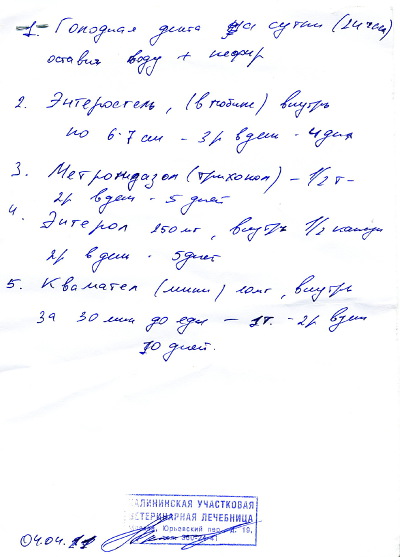 1. Голодная диета на сутки (24 часа)
оставив воду + кефир
2. Энтеросгель, (в тюбике) внутрь
по 6-7 см - 3р в день - 4 дня
3. Метронидазол (трихопол) - 1/2 т -
2р в день - 5 дней
4. Энтерол 250 мг, внутрь 1/2 капсулы
2р в день - 5 дней
5. Квамател (мини) 10мг, внутрь
за 30 мин до еды - 1т. - 2р в день
10 дней.
КАЛИНИНСКАЯ УЧАСТКОВАЯ
ВЕТЕРИНАРНАЯ ЛЕЧЕБНИЦА
Москва, Юрьевский пер. д. 10,
04.04.11